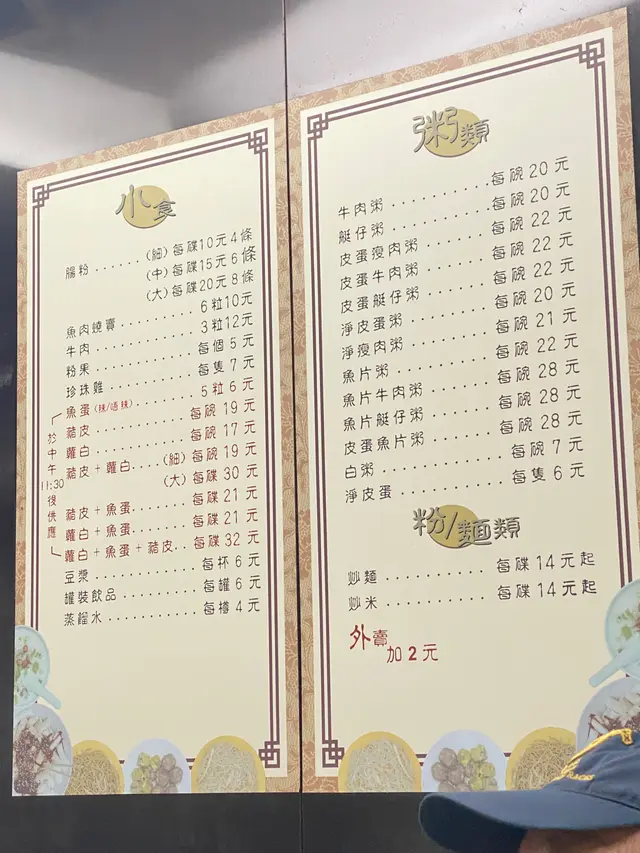 小食
腸粉.......(細)每碟10元4條
(中)每碟15元6條
(大)每碟20元8條
魚肉燒賣..........6粒10元
牛肉..............3粒12元
粉果..............每個5元
珍珠雞............每隻7元
魚蛋(辣/唔辣)......5粒6元
豬皮..............每碗19元
蘿白..............每碗17元
豬皮+蘿白....(細)每碗19元
(大)每碟30元
豬皮+魚蛋.......每碟21元
蘿白+魚蛋.......每碟21元
蘿白+魚蛋+豬皮..每碟32元
於中午11:30後供應
豆漿..............每杯6元
罐裝飲品..........每罐6元
蒸餾水............每樽4元
粥類
牛肉粥..........每碗20元
艇仔粥..........每碗20元
皮蛋瘦肉粥......每碗22元
皮蛋牛肉粥......每碗22元
皮蛋艇仔粥......每碗22元
淨皮蛋粥........每碗20元
淨瘦肉粥........每碗21元
魚片粥..........每碗22元
魚片牛肉粥......每碗28元
魚片艇仔粥......每碗28元
皮蛋魚片粥......每碗28元
白粥............每碗7元
淨皮蛋..........每隻6元
粉/麵類
炒麵..........每碟14元起
炒米..........每碟14元起
外賣加2元